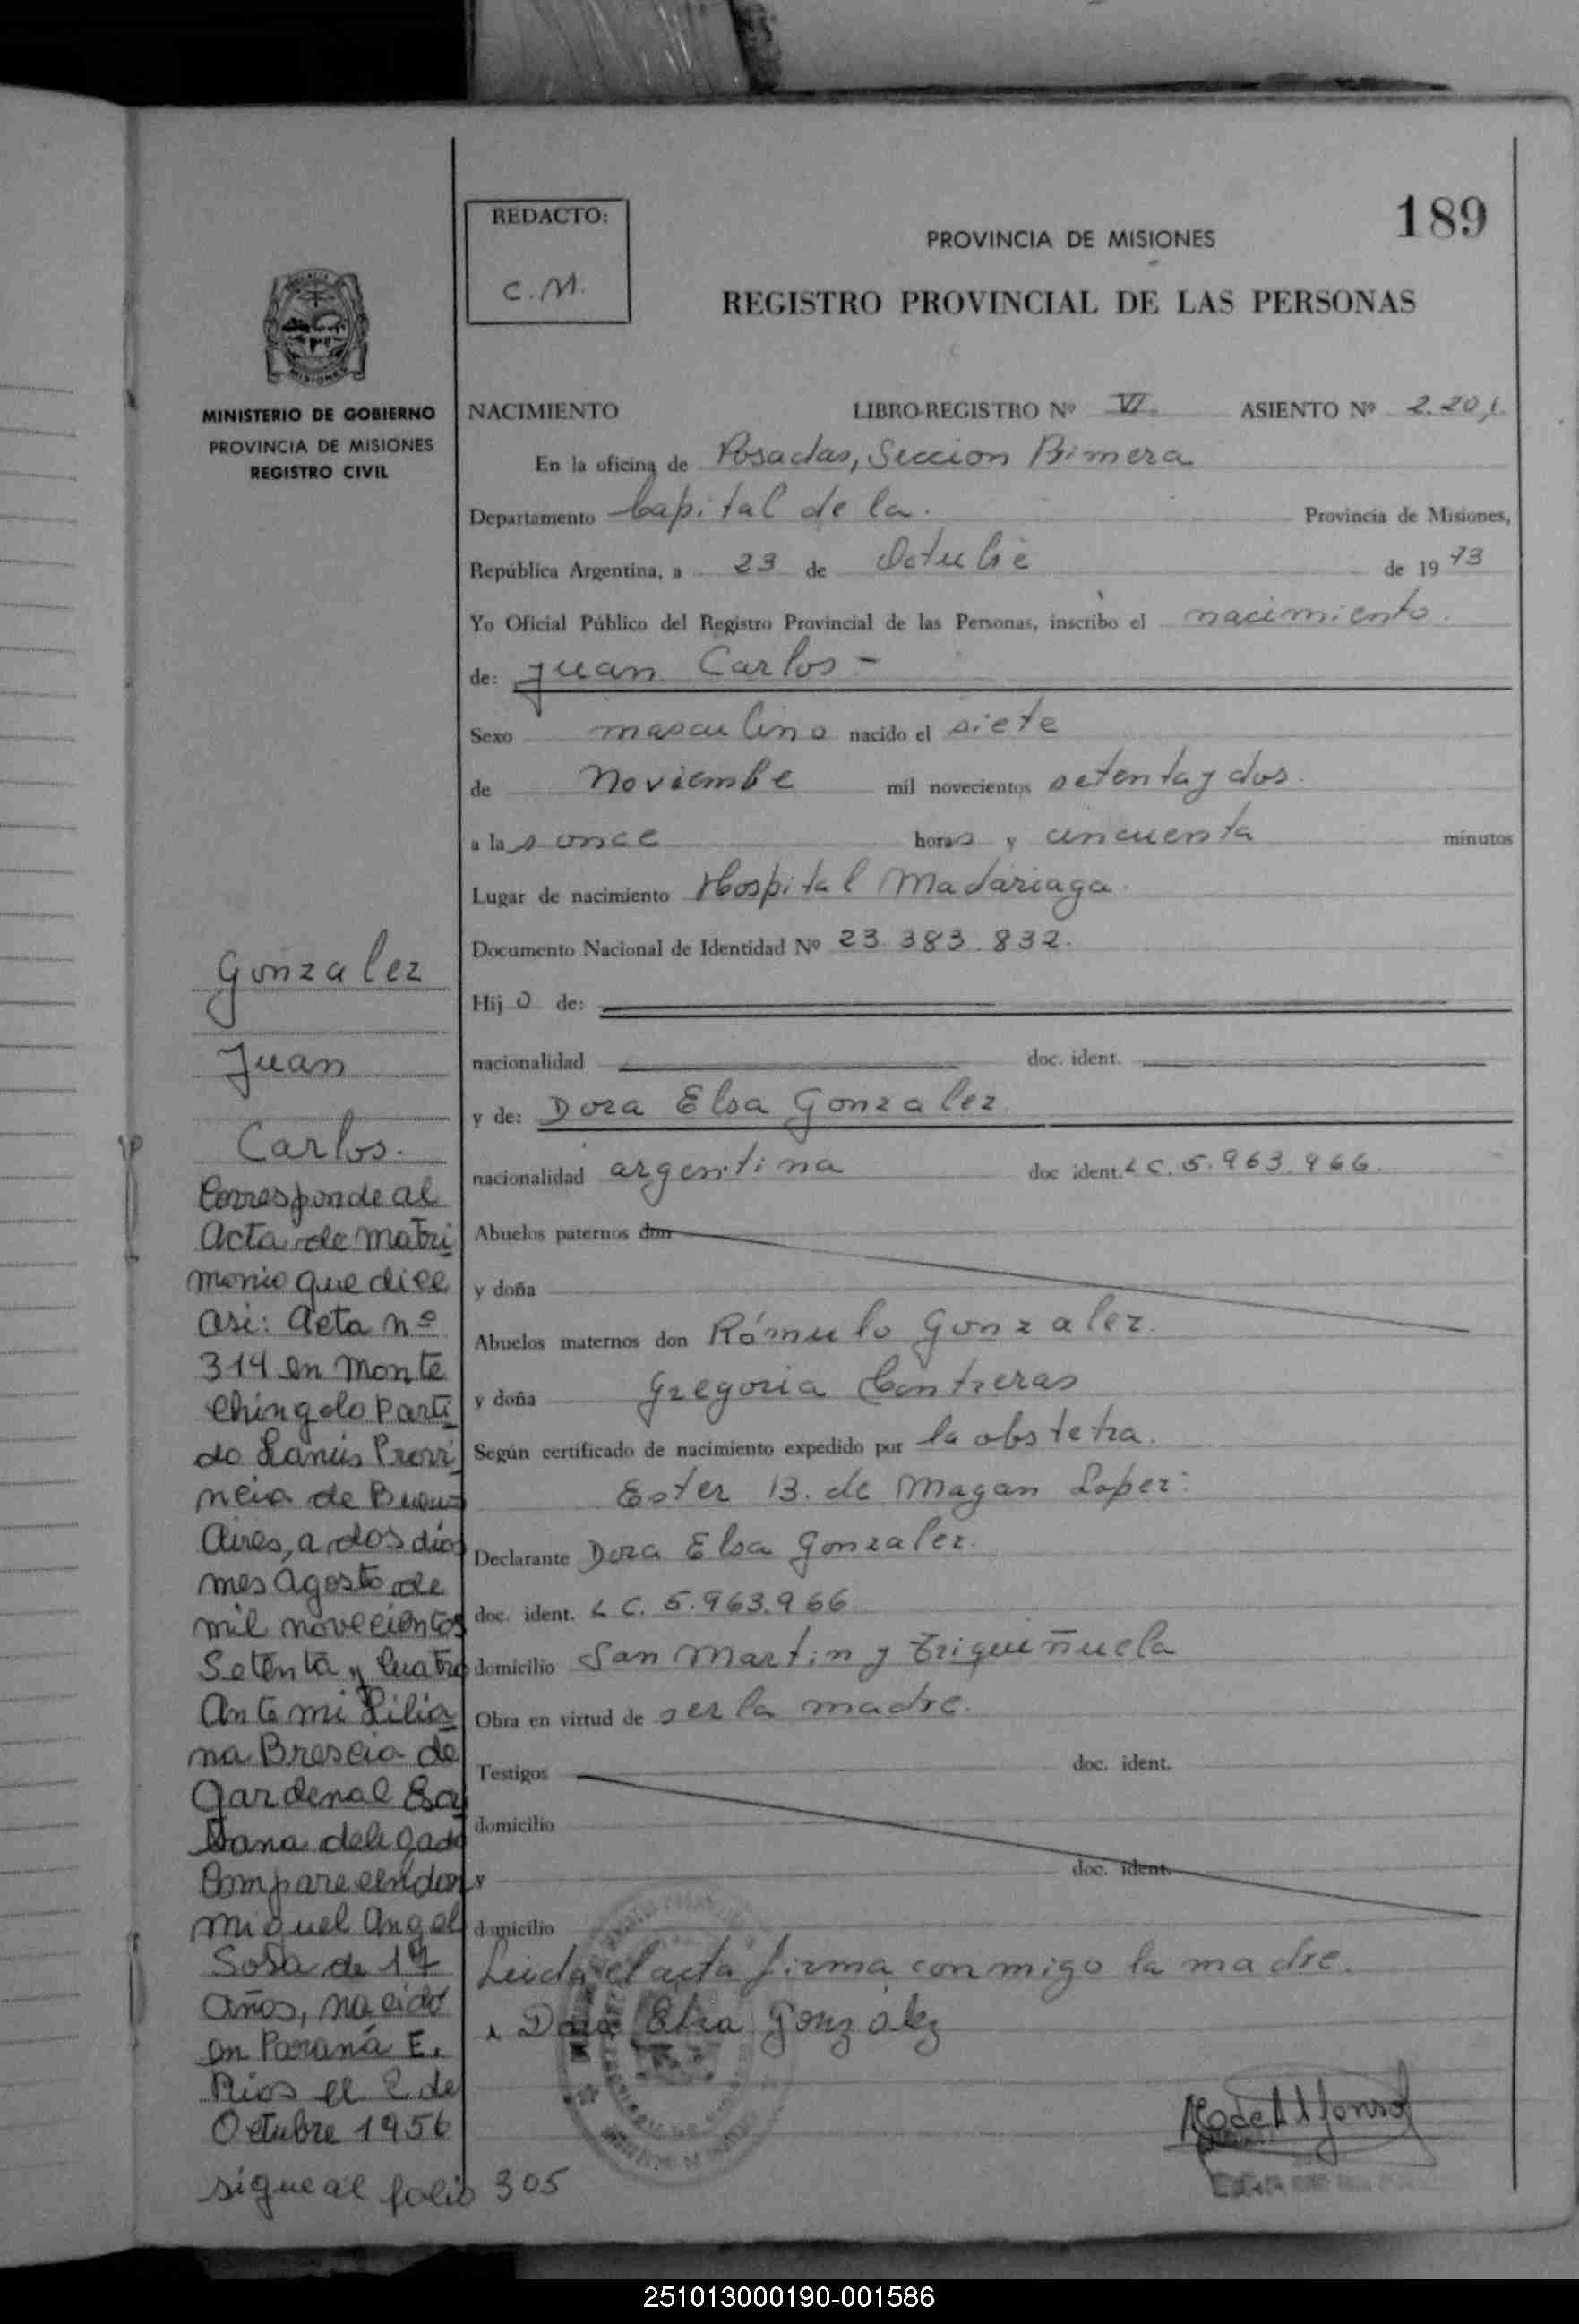 189
REDACTO:
C.M.
PROVINCIA DE MISIONES
REGISTRO PROVINCIAL DE LAS PERSONAS
MISIONES
MINISTERIO DE GOBIERNO
PROVINCIA DE MISIONES
REGISTRO CIVIL
NACIMIENTO LIBRO-REGISTRO Nº VI. ASIENTO Nº 2.201.
En la oficina de Posadas, Seccion Primera
Departamento Capital de la. Provincia de Misiones,
República Argentina, a 23 de Octubre de 1973
Yo Oficial Público del Registro Provincial de las Personas, inscribo el nacimiento.
de: Juan Carlos -
Sexo masculino nacido el siete
de Noviembre mil novecientos setenta y dos.
a las once horas y cincuenta minutos
Lugar de nacimiento Hospital Madariaga.
Documento Nacional de Identidad Nº 23.383.832.
Hijo de:
nacionalidad doc. ident.
y de: Dora Elsa Gonzalez
nacionalidad argentina doc ident. L C. 5.963.966.
Abuelos paternos don
y doña
Abuelos maternos don Rómulo Gonzalez.
y doña Gregoria Contreras
Según certificado de nacimiento expedido por la obstetra.
Ester B. de Magan Lopez.
Declarante Dora Elsa Gonzalez.
doc. ident. L C. 5.963.966
domicilio San Martin y Triquiñuela
Obra en virtud de ser la madre.
Testigos doc. ident.
domicilio
y doc. ident.
domicilio
Leida el acta firma conmigo la madre.
Dora Elsa Gonzalez
Gonzalez
Juan
Carlos.
Corresponde al
Acta de matri
monio que dice
asi: Acta nº
314 en Monte
Chingolo Parti
do Lanús Provi
ncia de Buenos
Aires, a dos días
mes agosto de
mil novecientos
Setenta y cuatro
Ante mi Lilia
na Brescia de
Gardenal
delegada
Comparecen don
Miguel Angel
Sosa de 17
años, nacido
en Paraná E.
Rios el 2 de
Octubre 1956
sigue al folio 305
251013000190-001586